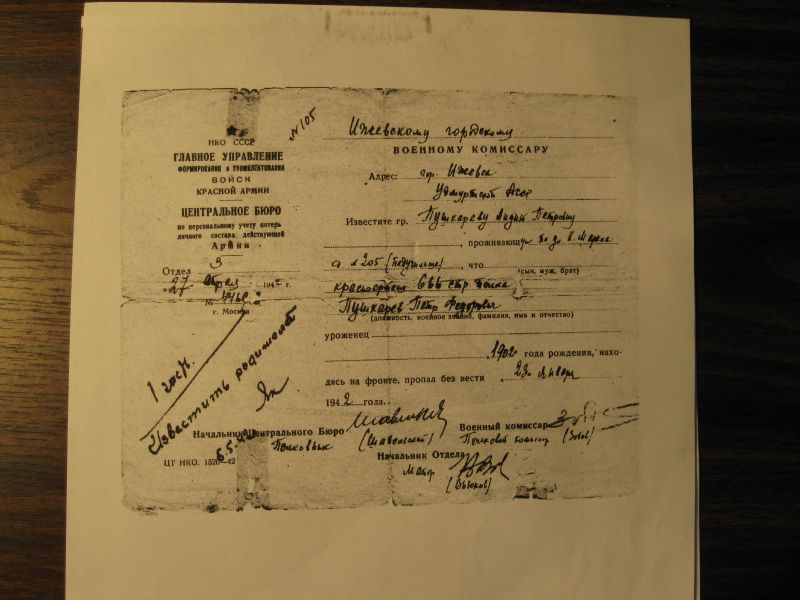 № 105
НКО СССР
ГЛАВНОЕ УПРАВЛЕНИЕ
ФОРМИРОВАНИЯ и УКОМПЛЕКТОВАНИЯ
ВОЙСК
КРАСНОЙ АРМИИ
ЦЕНТРАЛЬНОЕ БЮРО
по персональному учету потерь
личного состава действующей
Армии
Отдел 3
"27" апреля 1942 г.
№
г. Москва
Ижевскому городскому
ВОЕННОМУ КОМИССАРУ
Адрес: гор. Ижевск
Удмуртской Асср
Известите гр. Пушкареву Лидию Петровну
, проживающую по ул. К. Маркса
д № 205 , что
(сын, муж, брат)
красноармеец 666 стр. полка
Пушкарев Петр Федорович
(должность, военное звание, фамилия, имя и отчество)
уроженец
1902 года рождения, нахо-
дясь на фронте, пропал без вести 23 января
1942 года.
Начальник Центрального Бюро
Полковник
Военный комиссар
Полковой комиссар
Начальник Отдела
Майор
ЦГ НКО. 1520—42
Известить родителей
6.5.42